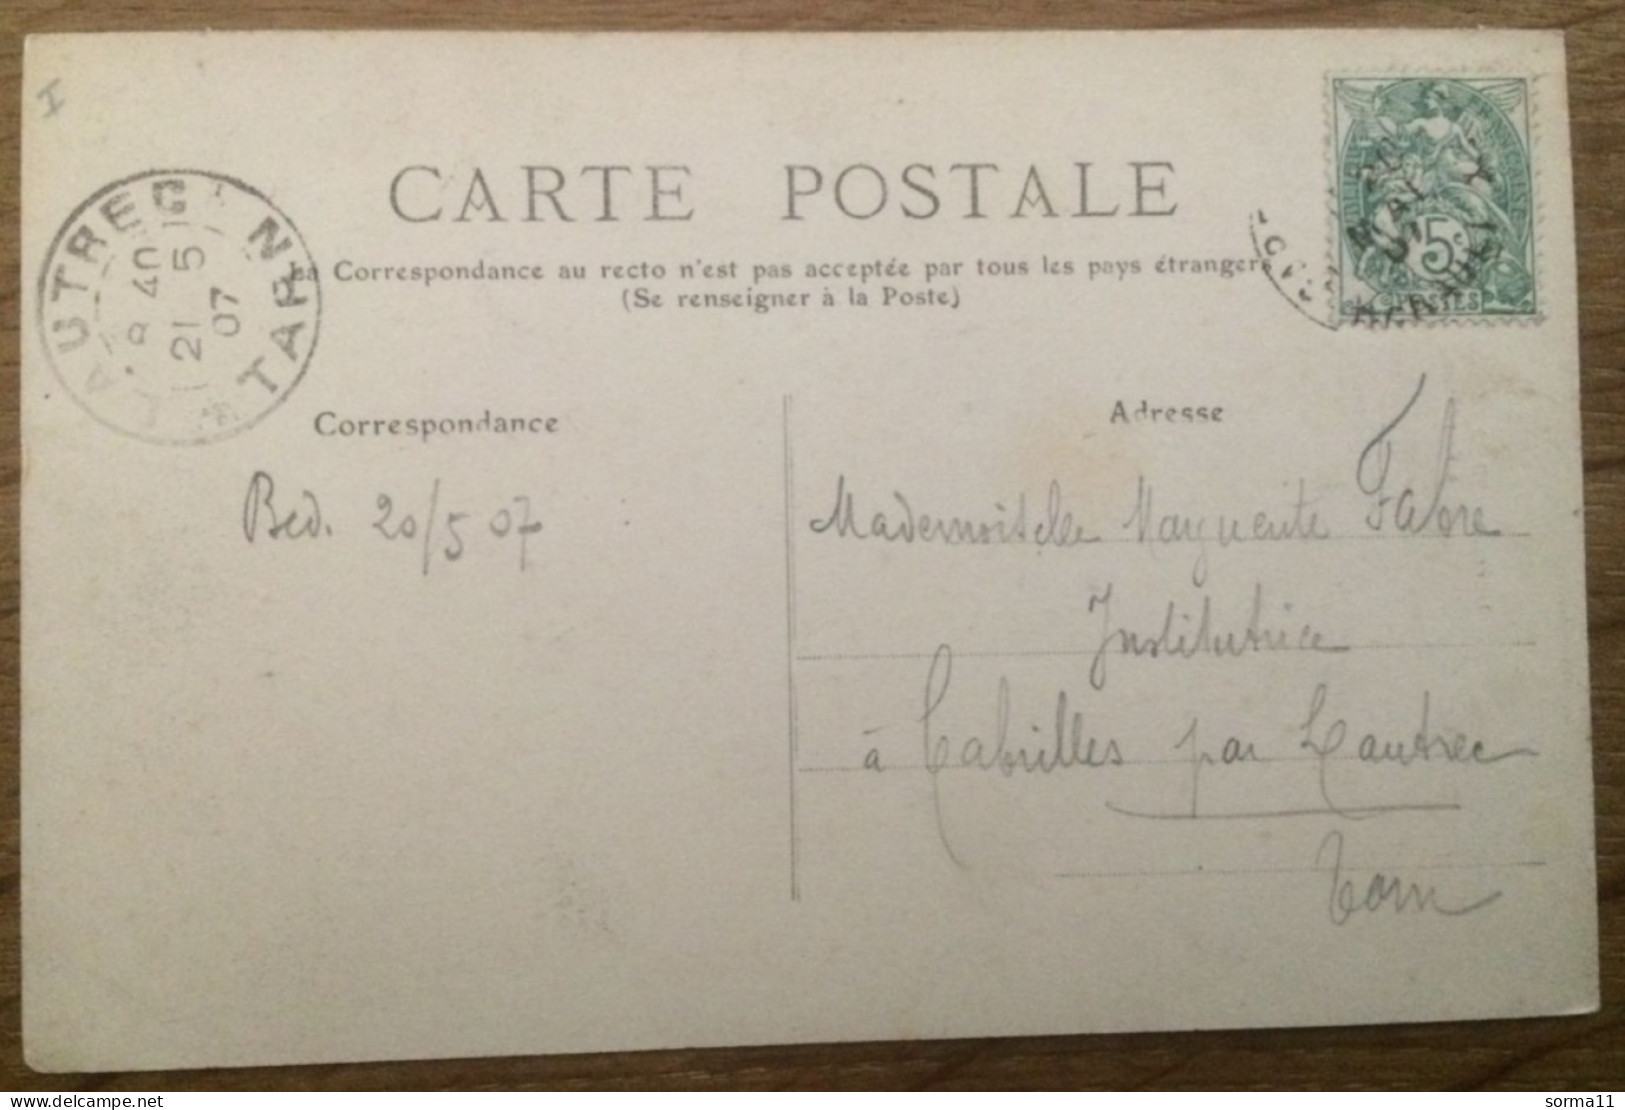 I
CARTE POSTALE
La Correspondance au recto n'est pas acceptée par tous les pays étrangers
(Se renseigner à la Poste)
LAUTREC TARN
8 40
21 5
07
20
MAI
07
5c
POSTES
Correspondance
Adresse
Bed. 20/5 07
Mademoiselle Marguerite Fabre
Institutrice
à Cabrilles par Lautrec
Tarn
sorma11